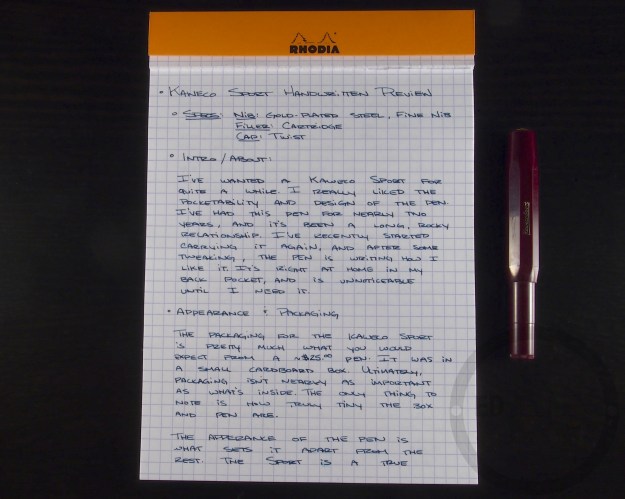 RHODIA
• Kaweco Sport Handwritten Review
• Specs: Nib: Gold-plated steel, Fine Nib
Filler: Cartridge
Cap: Twist
• Intro/About:
I've wanted a Kaweco Sport for
quite a while. I really liked the
pocketability and design of the pen.
I've had this pen for nearly two
years, and it's been a long, rocky
relationship. I've recently started
carrying it again, and after some
tweaking, the pen is writing how I
like it. It's right at home in my
back pocket, and is unnoticeable
until I need it.
• Appearance & Packaging
The packaging for the Kaweco Sport
is pretty much what you would
expect from a ~$25.00 pen. It was in
a small cardboard box. Ultimately,
packaging isn't nearly as important
as what's inside. The only thing to
note is how truly tiny the box
and pen are.
The appearance of the pen is
what sets it apart from the
rest. The Sport is a true